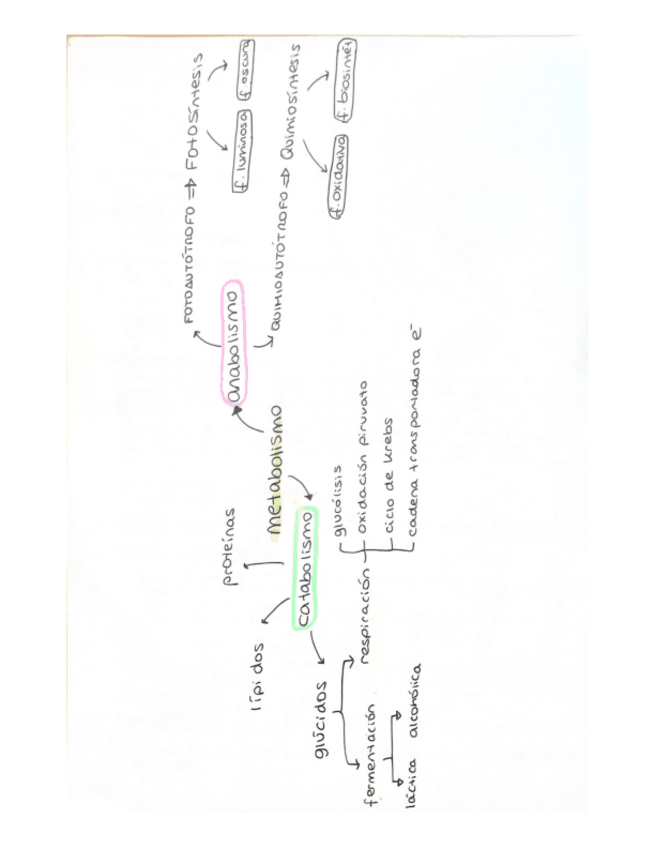 metabolismo
anabolismo
FOTOAUTÓTROFO ⇒ FOTOSÍNTESIS
f. luminosa
f oscura
QUIMIOAUTÓTROFO ⇒ QUIMIOSÍNTESIS
f. oxidativa
f. biosíntei
catabolismo
proteínas
lípidos
glúcidos
fermentación
láctica
alcohólica
respiración
glucólisis
oxidación piruvato
ciclo de krebs
cadena transportadora e⁻